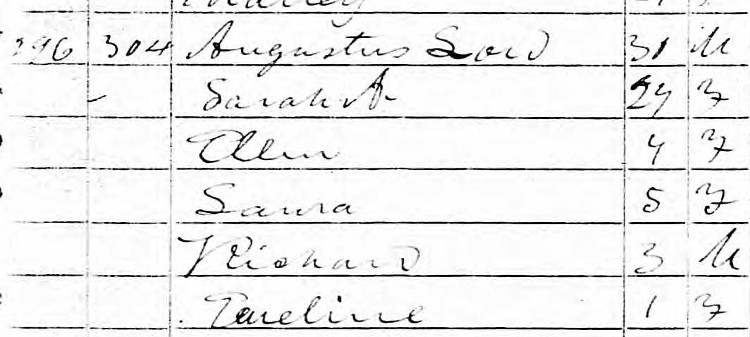 296 304 Augustus Lord 31 M
Sarah A 27 F
Ellen 7 F
Laura 5 F
Richard 3 M
Emeline 1 F